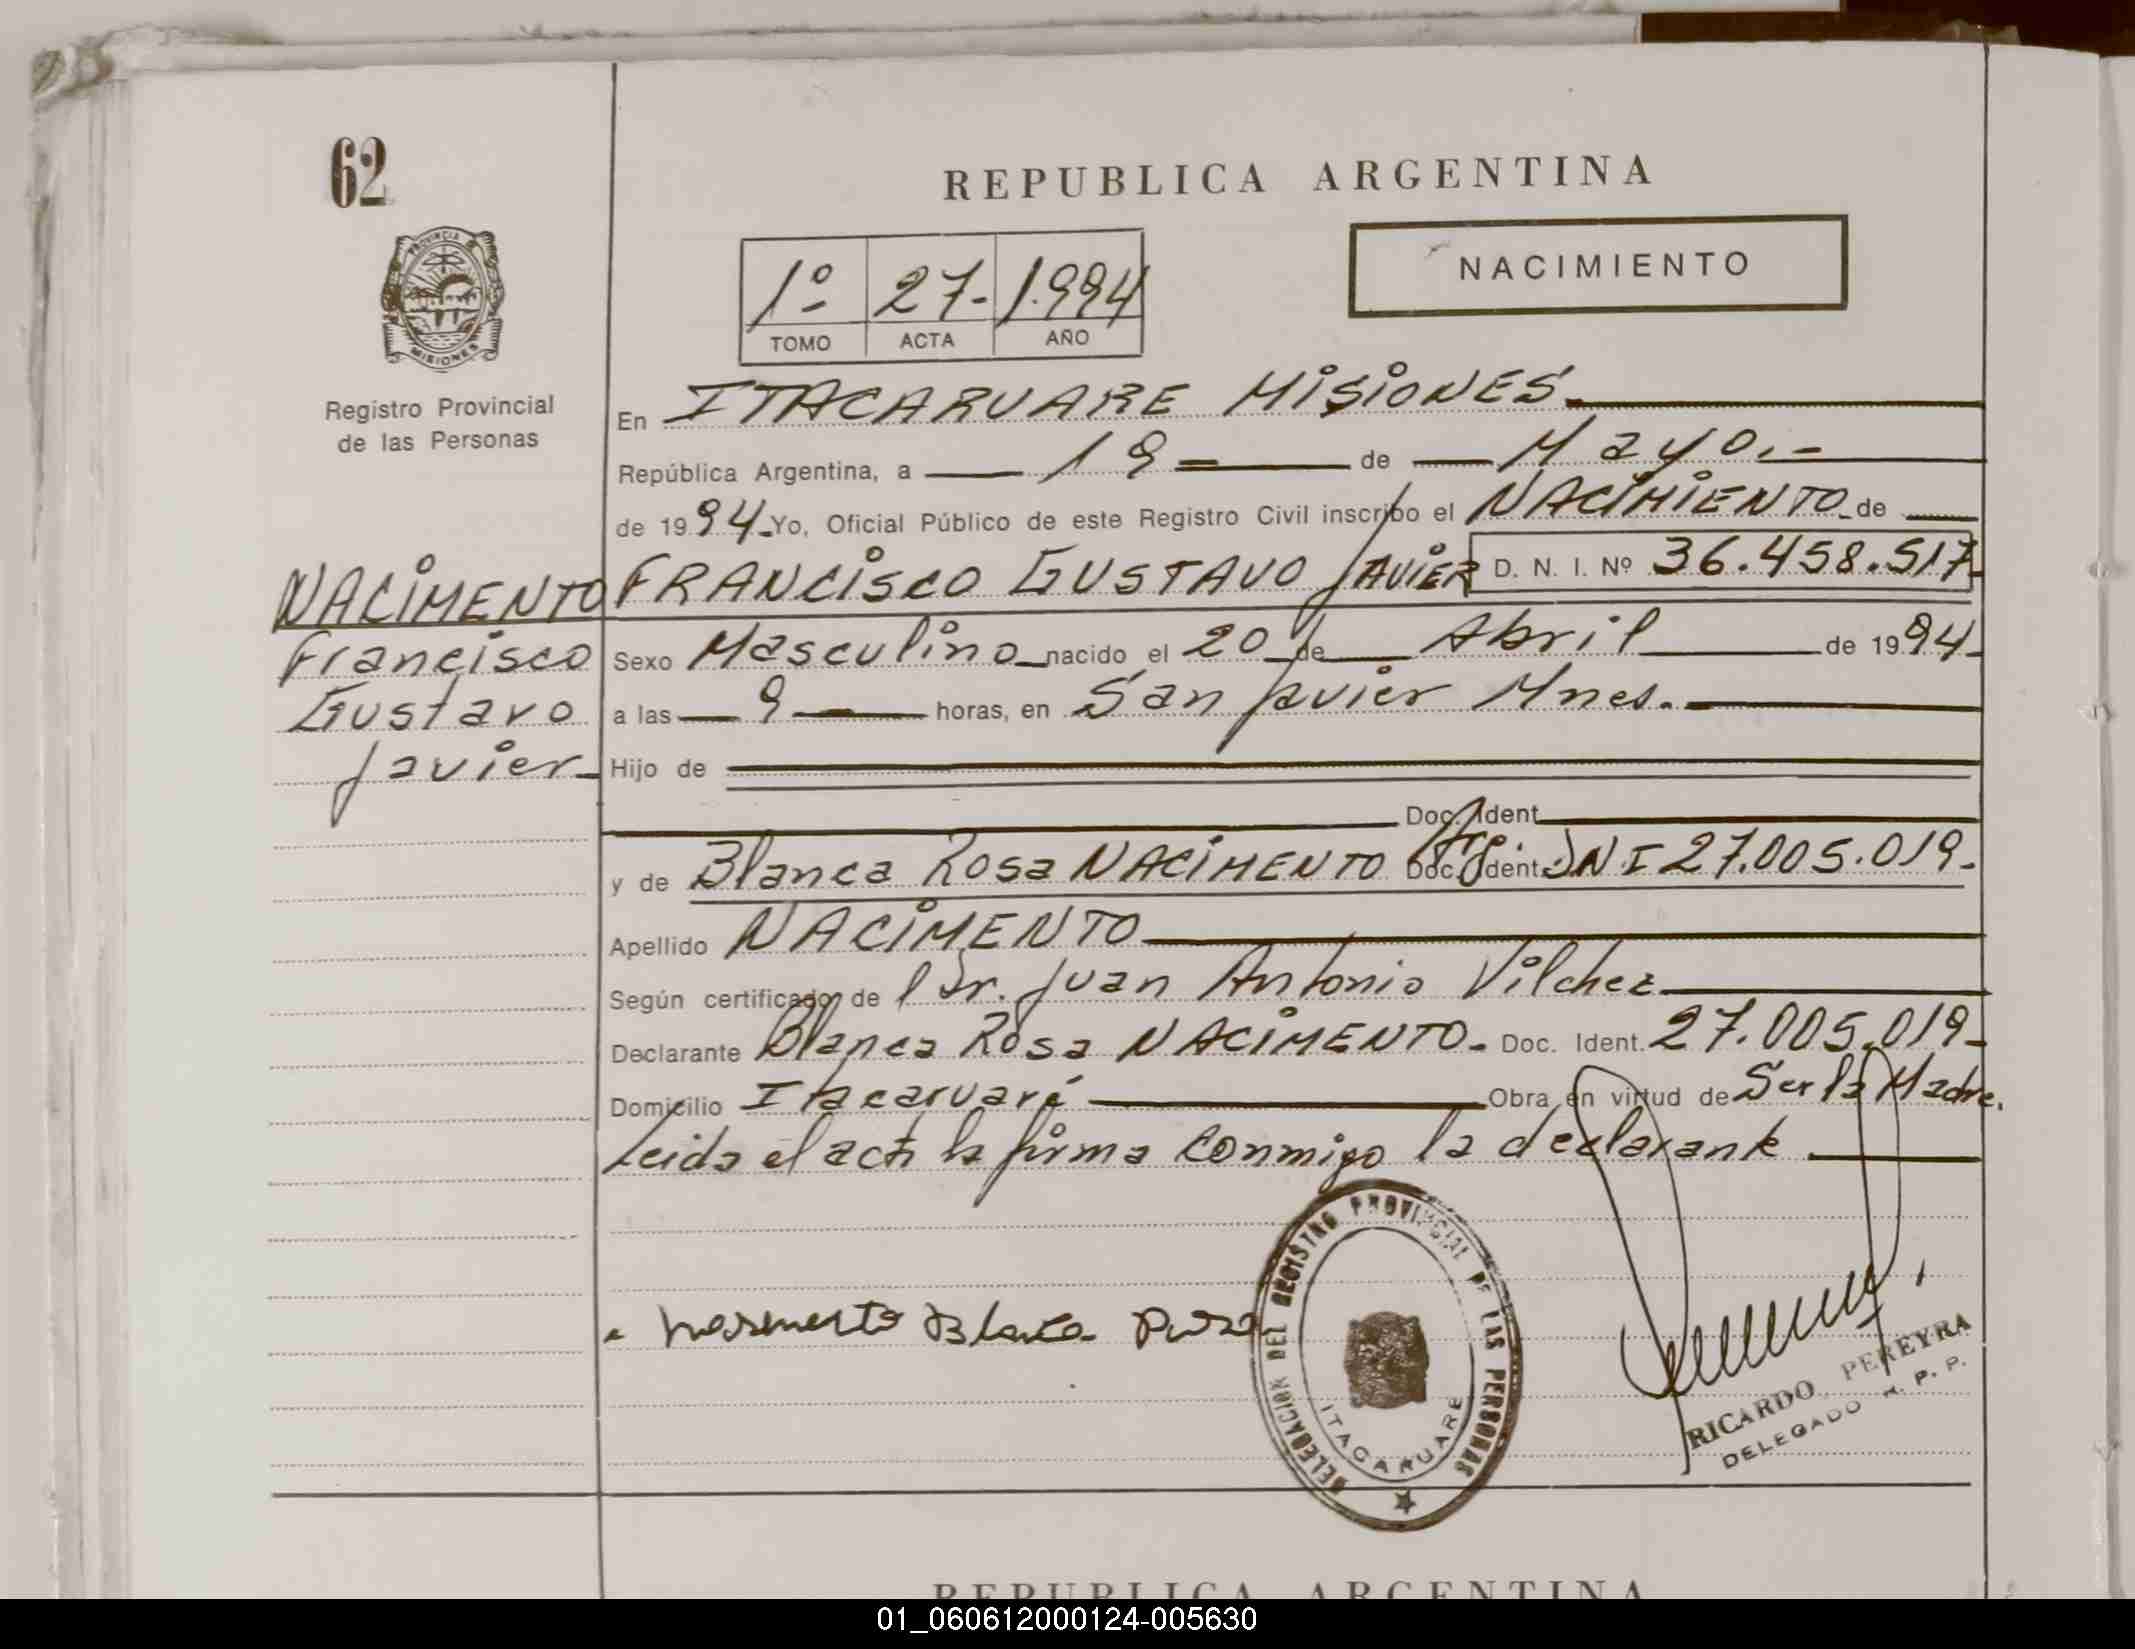 62
PROVINCIA DE
MISIONES
Registro Provincial
de las Personas
REPUBLICA ARGENTINA
1º 27- 1.994
TOMO ACTA AÑO
NACIMIENTO
En ITACARUARE MISIONES.
República Argentina, a 19 de Mayo.-
de 1994 Yo, Oficial Público de este Registro Civil inscribo el NACIMIENTO de
FRANCISCO GUSTAVO JAVIER D. N. I. Nº 36.458.517
NACIMENTO
Francisco
Gustavo
Javier
Sexo Masculino nacido el 20 de Abril de 1994
a las 9 horas, en San Javier Mnes.
Hijo de
Doc. Ident
y de Blanca Rosa NACIMENTO Doc. Ident. DNI 27.005.019.
Apellido NACIMENTO
Según certificado de l Dr. Juan Antonio Vilchez
Declarante Blanca Rosa NACIMENTO. Doc. Ident. 27.005.019
Domicilio Itacaruaré Obra en virtud de Ser la Madre.
Leida el acta la firma conmigo la declarante
Blanca
DELEGACION DEL REGISTRO PROVINCIAL DE LAS PERSONAS
ITACARUARE
RICARDO PEREYRA
DELEGADO R. P. P.
REPUBLICA ARGENTINA
01_060612000124-005630